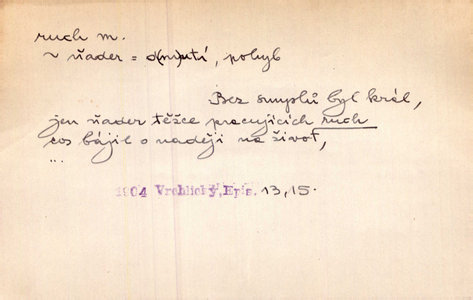 ruch m.
~ ňader = d(m)utí, pohyb
Bez smyslů byl král,
jen ňader těžce pracujících ruch
cos bájil o naději na život,
...
1904 Vrchlický, Epic. 13, 15.